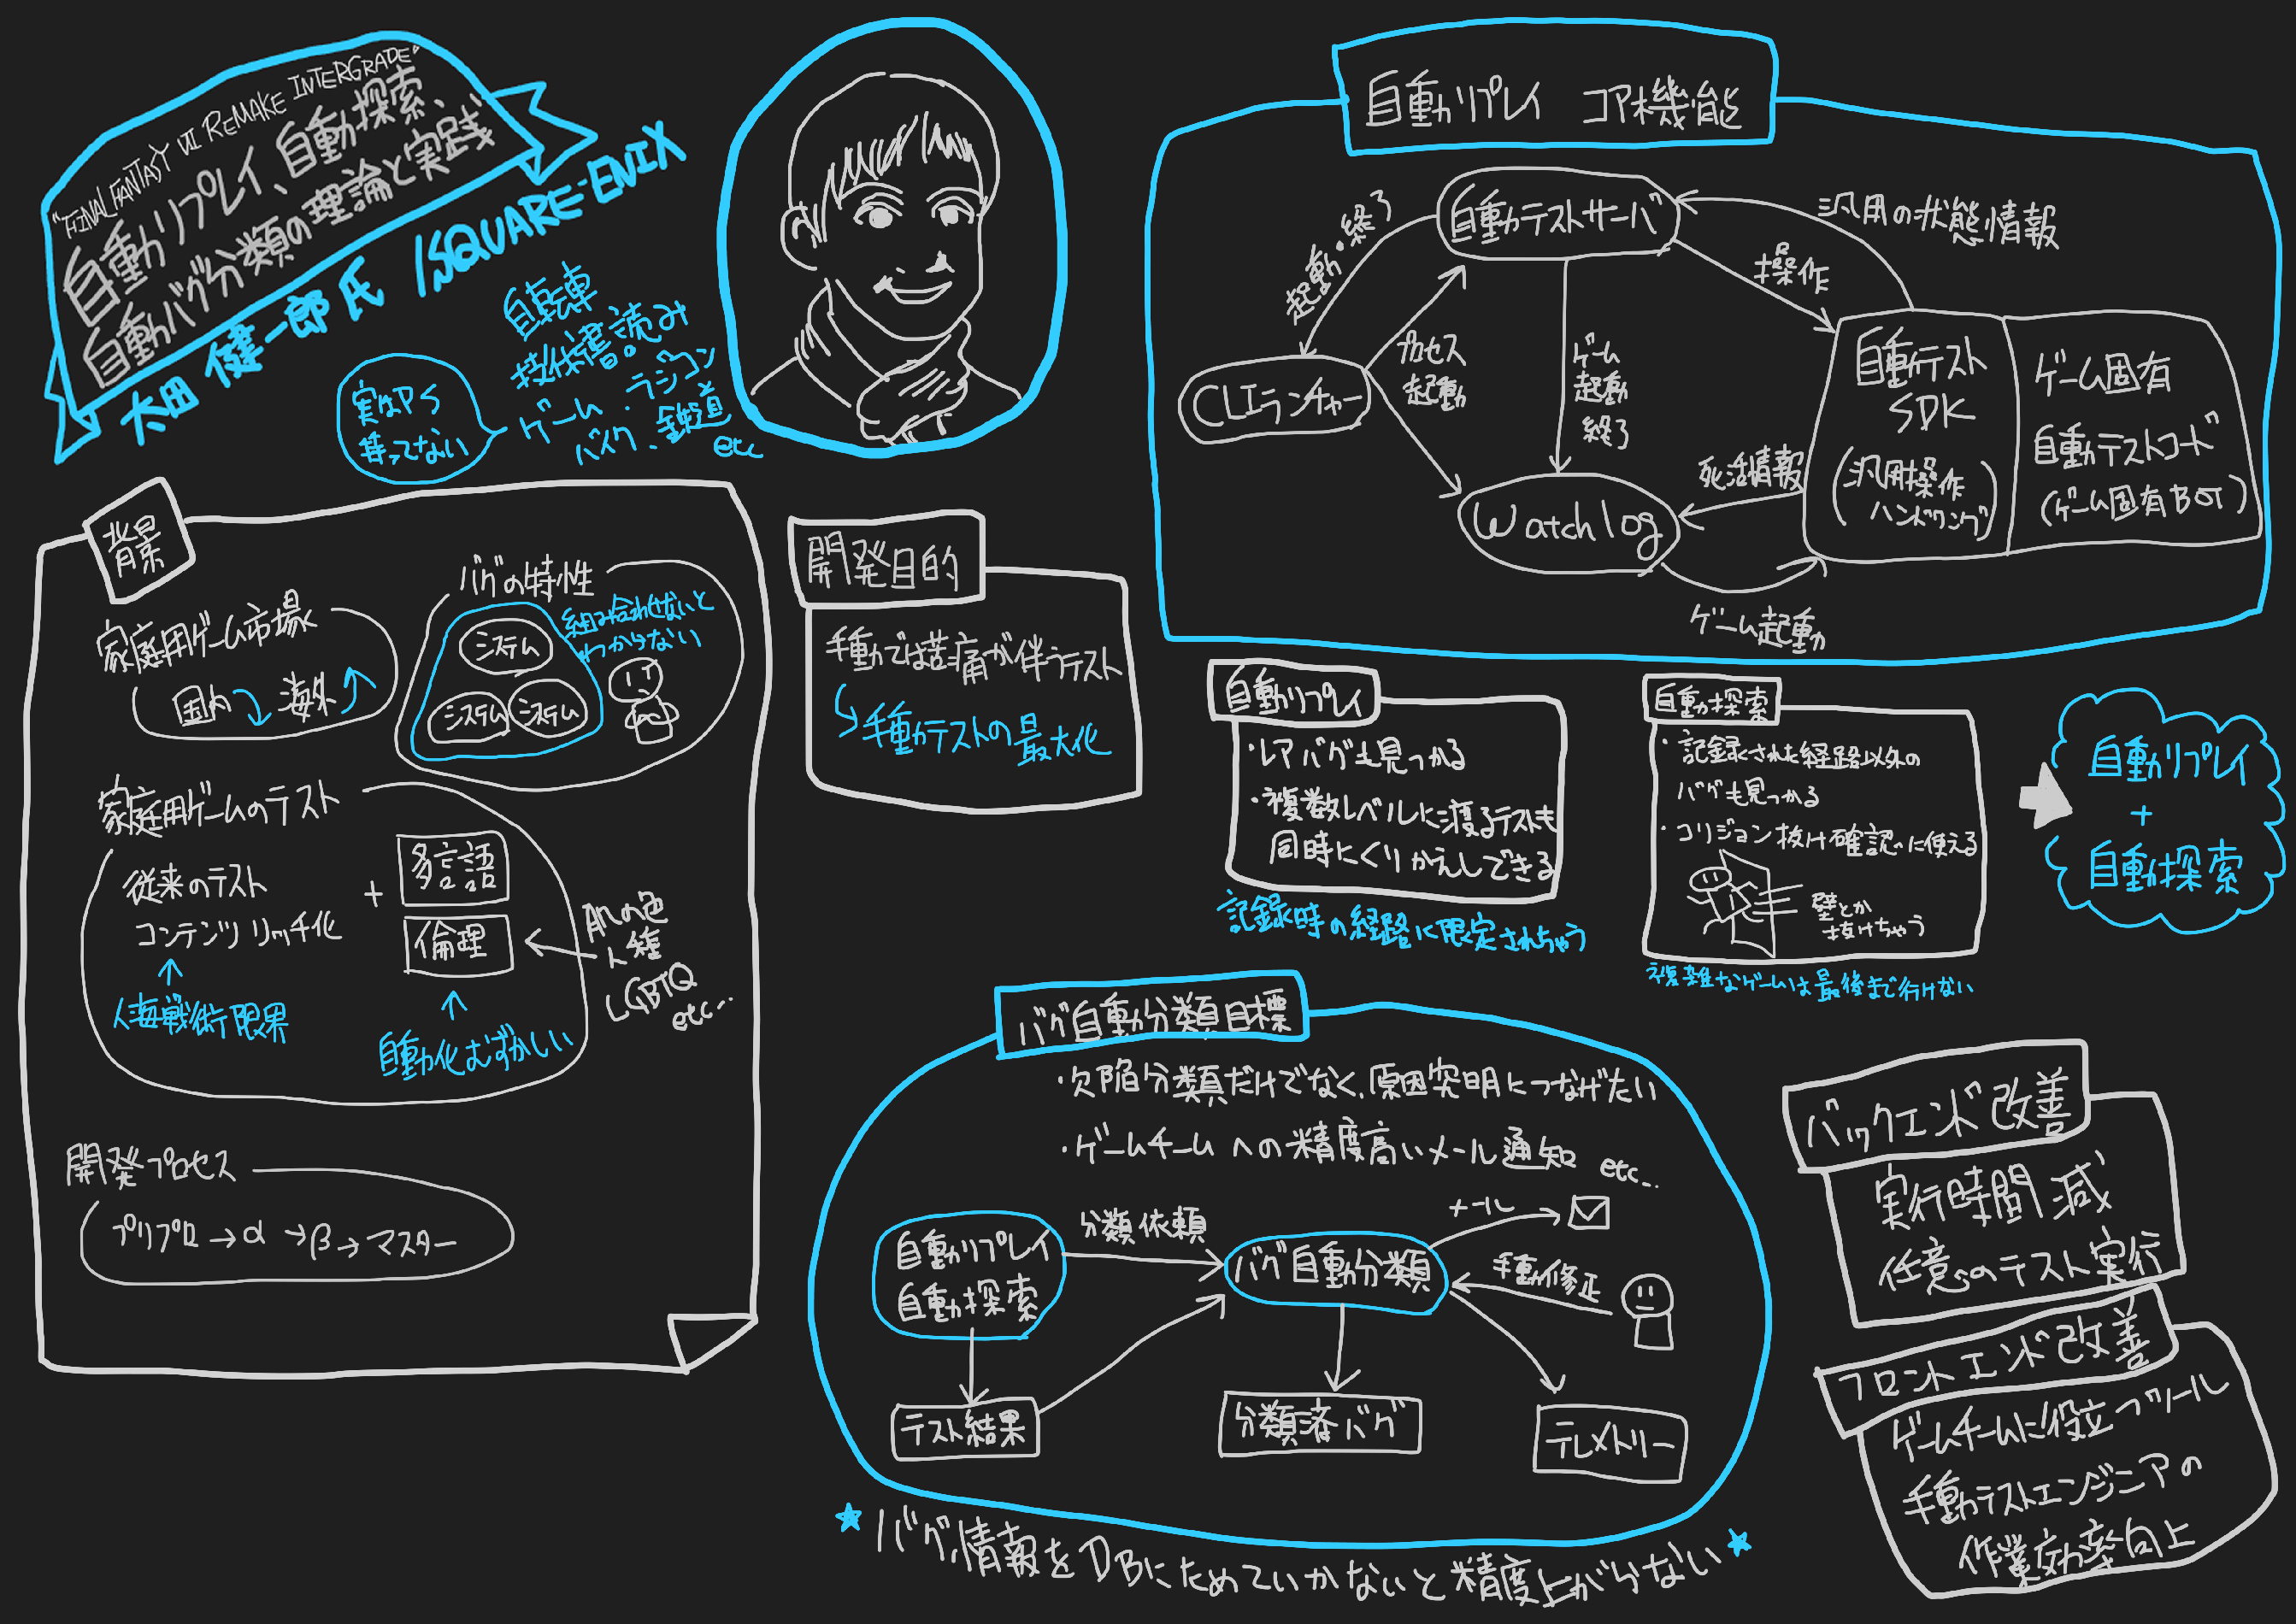 "FINAL FANTASY VII REMAKE INTERGRADE"
自動リプレイ、自動探索、
自動バグ分類の理論と実践
太田 健一郎氏 / SQUARE-ENIX
自転車
技術書読み
ゲーム・ラジコン
バイク・鉄道
etc
実はPS5
持ってない
背景
家庭用ゲーム市場
国内 海外
バグの特性
システム
システム
システム
組み合わせないと
わからない
家庭用ゲームのテスト
従来のテスト
コンテンツ リッチ化
+
多言語
倫理
肌の色
人種
LGBTQ
etc...
人海戦術限界
自動化むずかしい
開発プロセス
プリプロ→α→β→マスター
開発目的
手動では苦痛が伴うテスト
手動テストの最大化
自動リプレイ コア機能
自動テストサーバ
汎用の状態情報
操作
起動・終了
プロセス
起動
ゲーム
起動
終了
CLIランチャー
自動テスト
SDK
(汎用操作
ハンドリング)
ゲーム固有
自動テストコード
(ゲーム固有BOT)
死活情報
Watchlog
ゲーム起動
自動リプレイ
・レアバグも見つかる
・複数レベルに渡るテストも
同時にくりかえしできる
記録時の経路に限定されちゃう
自動探索
・記録された経路以外の
バグも見つかる
・コリジョン抜け確認に使える
壁とか
抜けちゃう
複雑なゲームは最後まで行けない
自動リプレイ
+
自動探索
バグ自動分類目標
・欠陥分類だけでなく、原因究明につなげたい
・ゲームチームへの精度高いメール通知 etc...
自動リプレイ
自動探索
分類依頼
バグ自動分類
メール
手動修正
テスト結果
分類済バグ
テレメトリー
★バグ情報をDBにためていかないと精度上がらない★
バックエンド改善
実行時間減
任意のテスト実行
フロントエンド改善
ゲームチームに役立つツール
手動テストエンジニアの
作業効率向上